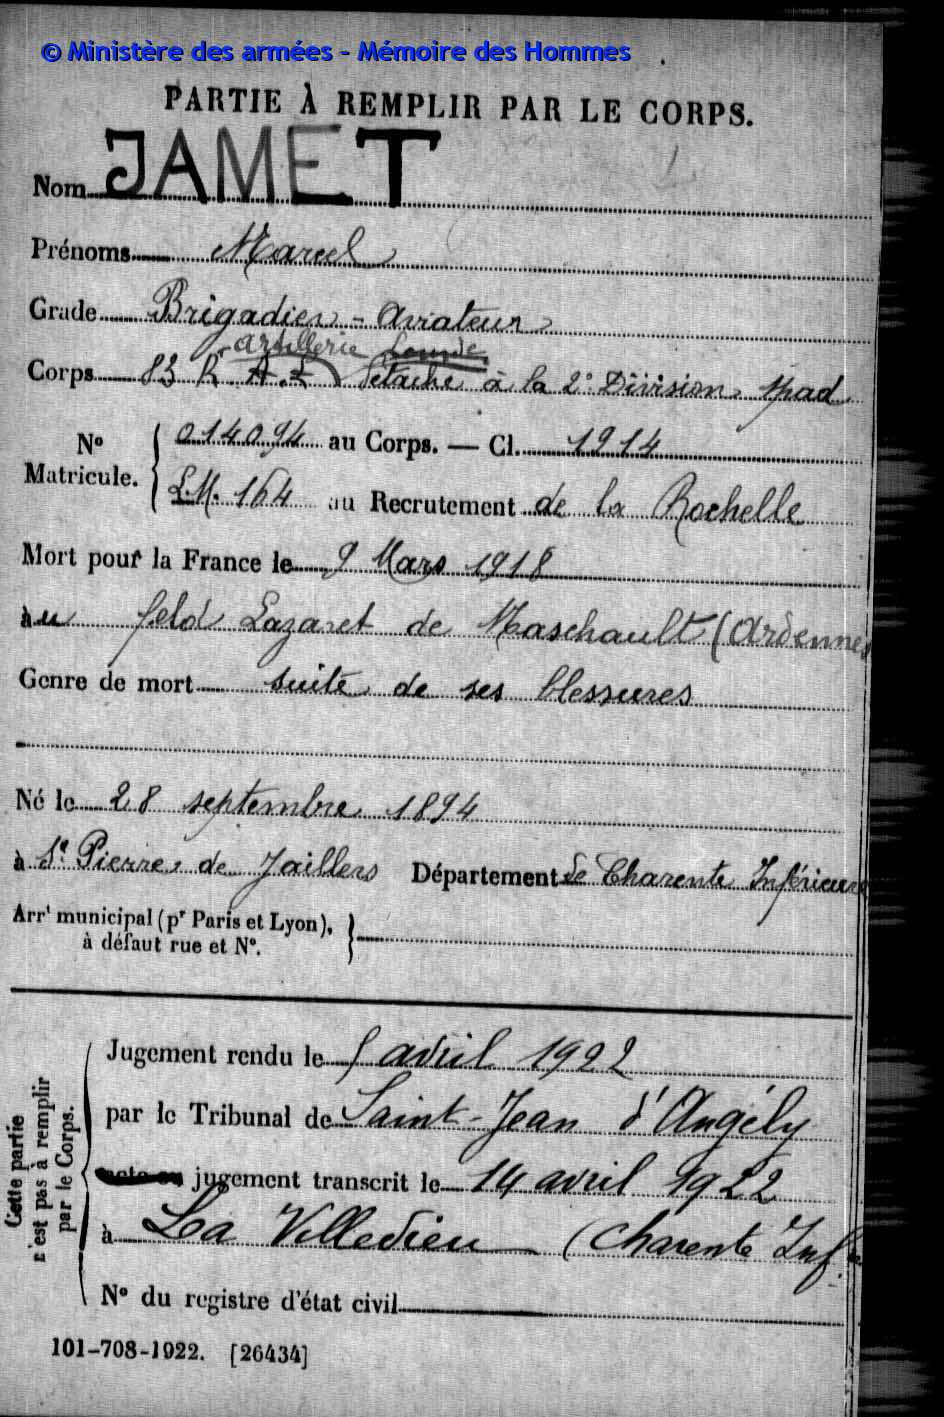 © Ministère des armées - Mémoire des Hommes
PARTIE À REMPLIR PAR LE CORPS.
Nom JAMET
Prénoms Marcel
Grade Brigadier - Aviateur
artillerie Lourde
Corps 83 R. A.L détaché à la 2e Division Spad
No Matricule. { 014094 au Corps. — Cl. 1914
L.M. 164 au Recrutement de la Rochelle
Mort pour la France le 9 Mars 1918
au feld Lazaret de Maschault (Ardennes
Genre de mort suite de ses blessures
Né le 28 septembre 1894
à St Pierre de Jaillers Département de Charente Inférieure
Arrt municipal (pr Paris et Lyon),
à défaut rue et No. }
Cette partie
n'est pas à remplir
par le Corps.
Jugement rendu le 5 avril 1922
par le Tribunal de Saint-Jean d'Angély
acte ou jugement transcrit le 14 avril 1922
à La Villedieu (Charente Infre
No du registre d'état civil
101-708-1922. [26434]